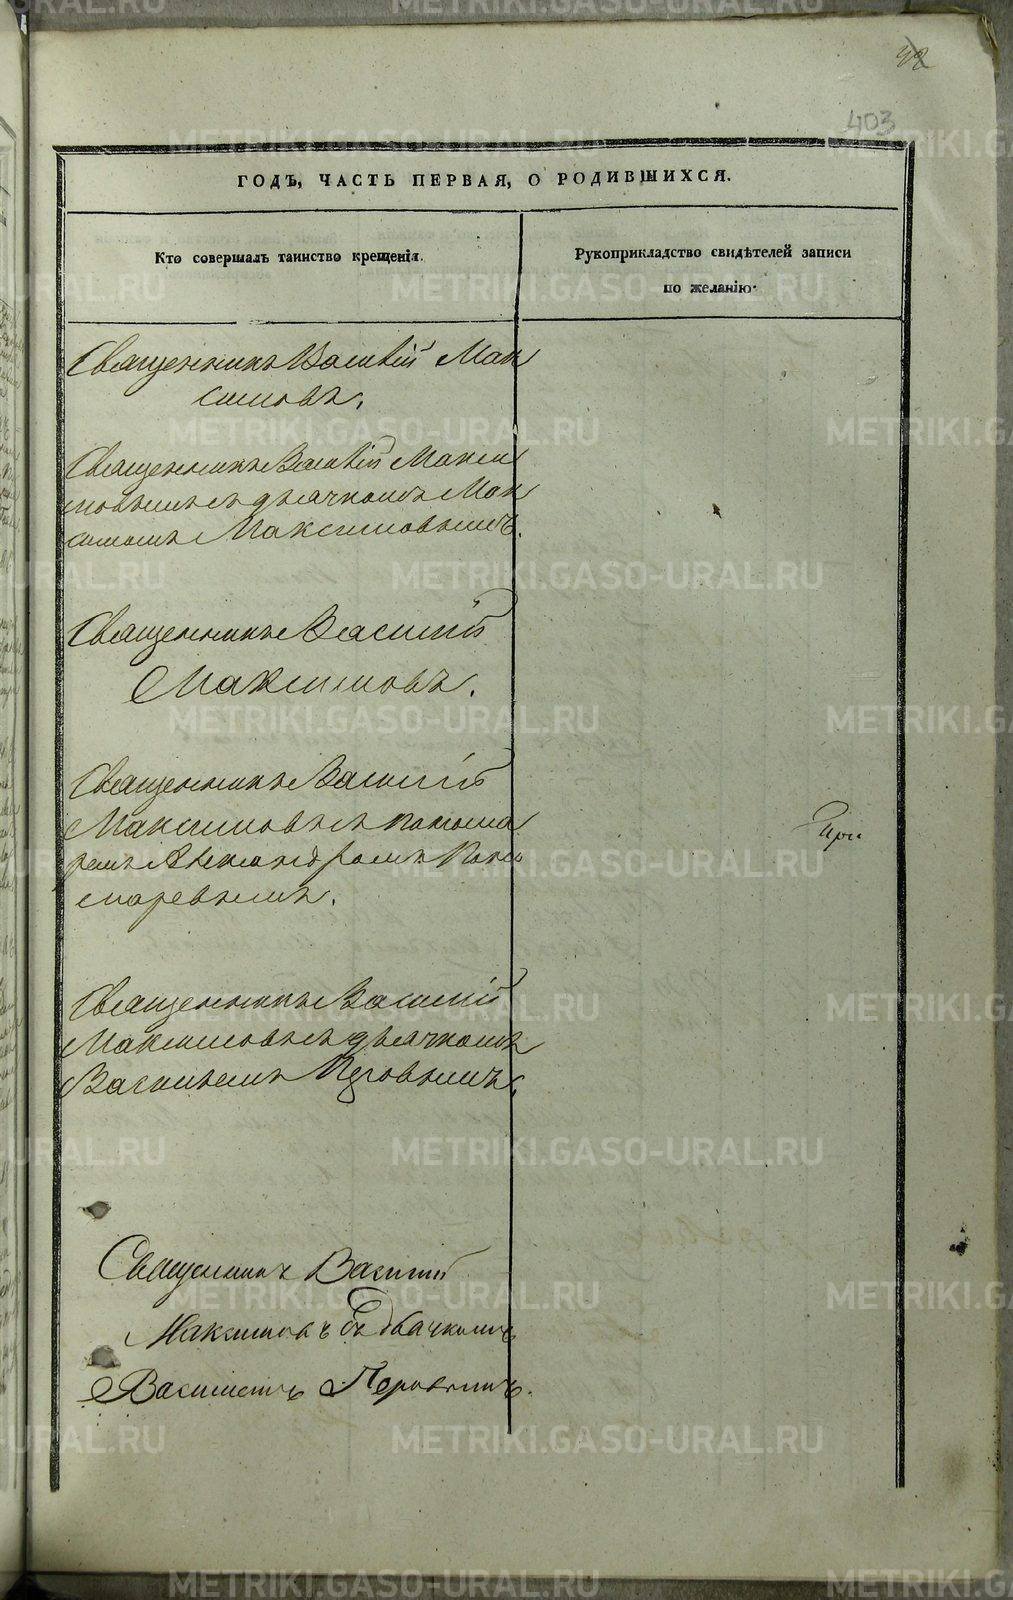 403
ГОДЪ, ЧАСТЬ ПЕРВАЯ, О РОДИВШИХСЯ.
Кто совершалъ таинство крещенія.
Рукоприкладство свидѣтелей записи
по желанію.
Священникъ Василій Мак
симовъ.
Священникъ Василій Макси
мовымъ съ дьячкомъ Мак
симомъ Максимовымъ.
Священникъ Василій
Максимовъ.
Священникъ Василій
Максимовъ съ пономаремъ
Александромъ
Священникъ Василій
Максимовъ съ дьячкомъ
Василіемъ
Священникъ Василій
Максимовъ съ дьячкомъ
Василіемъ
При
METRIKI.GASO-URAL.RU